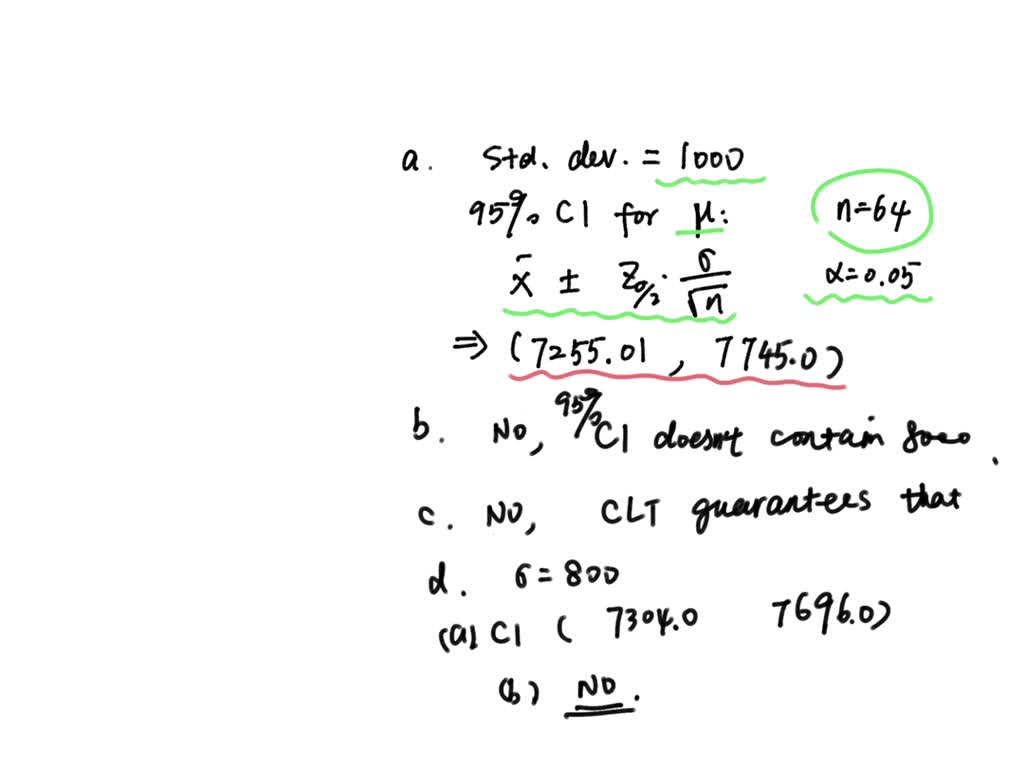 a. Std. dev. = 1000
95% CI for μ: n=64
x̄ ± Zα/2 · σ/√n α=0.05
⇒ (7255.01, 7745.0)
b. No, 95% CI doesn't contain 8000.
c. No, CLT guarantees that
d. σ=800
(a) CI ( 7304.0 7696.0)
(b) NO.